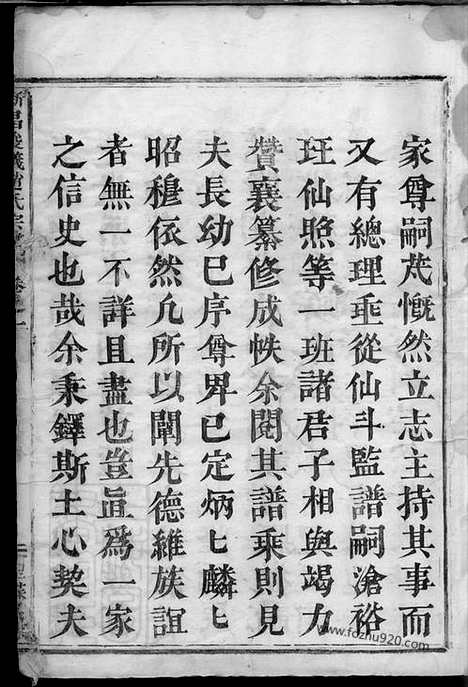 家尊嗣芃慨然立志主持其事而
又有總理乖從仙斗監譜嗣滄裕
玨仙照等一班諸君子相與竭力
贊襄纂修成帙余閱其譜乘則見
夫長幼已序尊畀已定炳匕麟匕
昭穆依然凢所以闡先德維族誼
者無一不詳且盡也豈眞爲一家
之信史也哉余秉鐸斯土心契夫
www.fozhu920.com